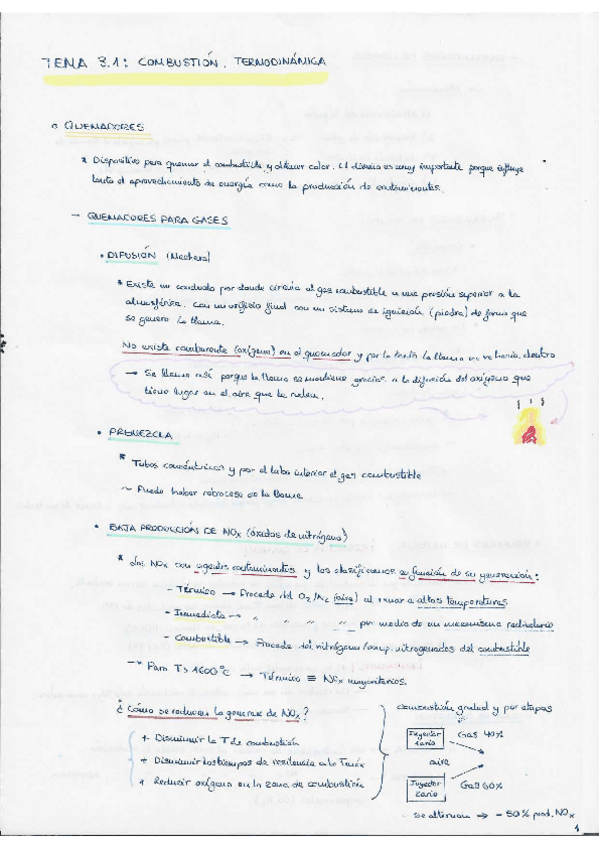 TEMA 3.1: COMBUSTIÓN. TERMODINÁMICA
QUEMADORES
* Dispositivo para quemar el combustible y obtener calor. El diseño es muy importante porque influye
tanto el aprovechamiento de energía como la producción de contaminantes.
— QUEMADORES PARA GASES
• DIFUSIÓN (Mechero)
* Existe un conducto por donde circula el gas combustible a una presión superior a la
atmosférica. Con un orificio final con un sistema de ignición (piedra) de forma que
se genera la llama.
No existe comburente (oxígeno) en el quemador y por lo tanto la llama no va hacia dentro
→ Se llama así porque la llama se mantiene gracias a la difusión del oxígeno que
tiene lugar en el aire que la rodea.
• PREMEZCLA
* Tubos concéntricos y por el tubo interior el gas combustible
~ Puede haber retroceso de la llama
• BAJA PRODUCCIÓN DE NOx (óxidos de nitrógeno)
* Los NOx son agentes contaminantes y los clasificamos en función de su generación:
- Térmico → Procede del O2/N2 (aire) al reaccionar a altas temperaturas
- Inmediato → " " " " por medio de un mecanismo radicalario
- Combustible → Procede del nitrógeno/comp. nitrogenados del combustible
→ * Para T > 1600°C → Térmico ≡ NOx mayoritarios.
¿Cómo se reducen la generax de NOx?
+ Disminuir la T de combustión
+ Disminuir los tiempos de residencia a la Tmáx
+ Reducir oxígeno en la zona de combustión
combustión gradual y por etapas
Inyector 1ario Gas 40%
aire
Inyector 2ario Gas 60%
se alternan → - 50% prod. NOx
1